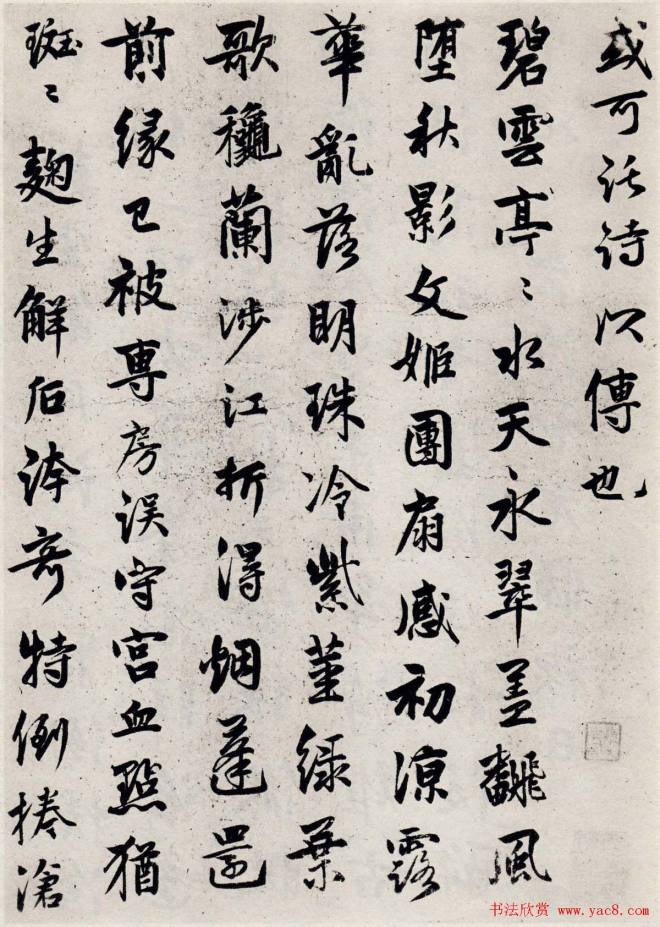 或可託詩以傳也
碧雲亭〻水天永翠蓋飜風
堕秋影文姬團扇感初凉露
華亂落明珠冷紫莖緑葉
歌龝蘭涉江折得烟蓬還
前緣已被專房誤守宮血點猶
斑〻麴生解后誇奇特倒捲滄
书法欣赏 www.yac8.com